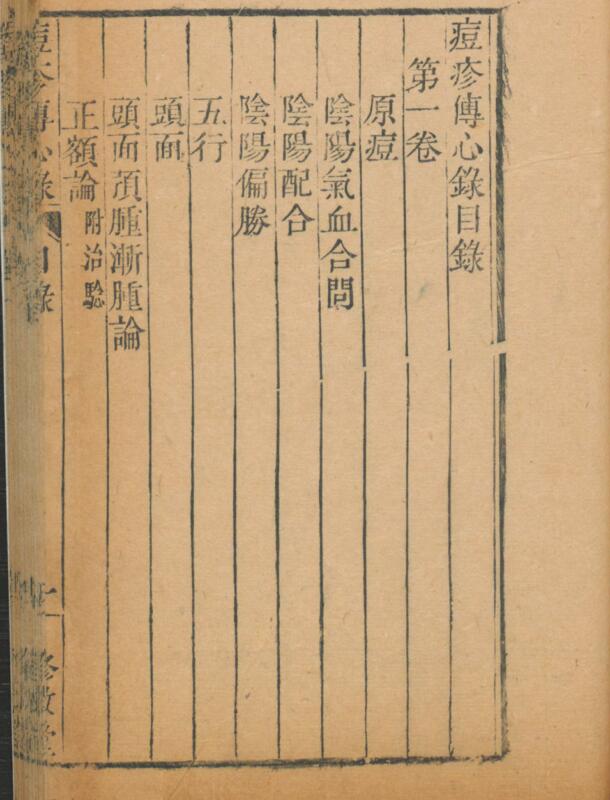 痘疹傳心錄目錄
第一卷
原痘
陰陽氣血合問
陰陽配合
陰陽偏勝
五行
頭面
頭面頂腫漸腫論
正額論附治驗
痘疹傳心錄 目錄
修敬堂